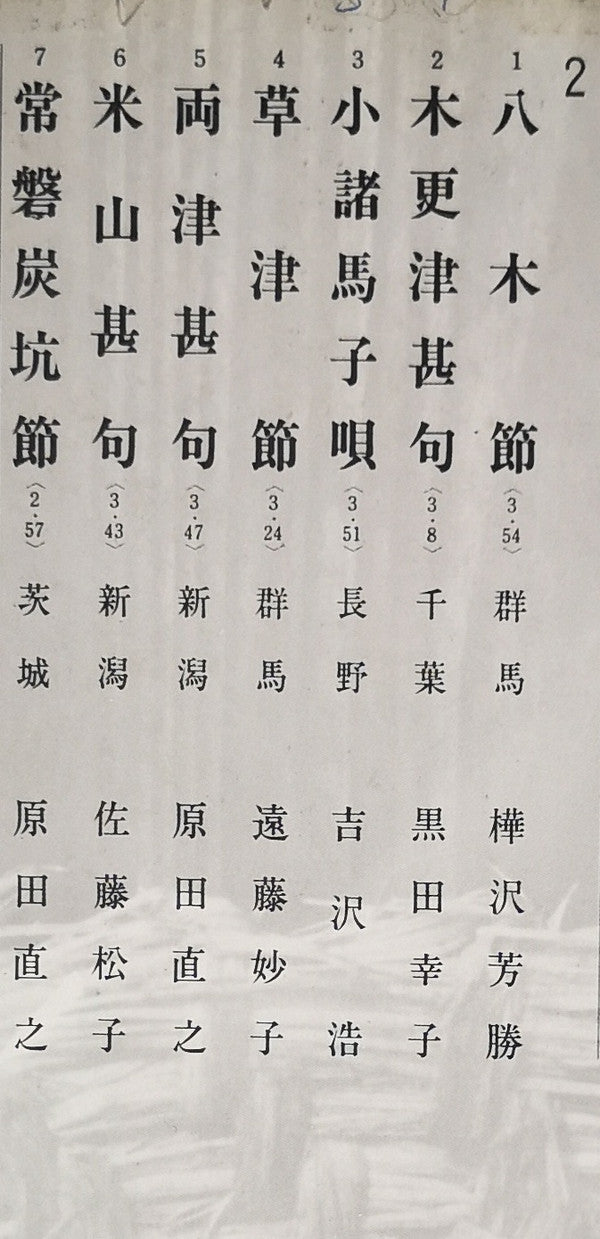 2
1 八木節〈3・54〉群馬 樺沢芳勝
2 木更津甚句〈3・8〉千葉 黒田幸子
3 小諸馬子唄〈3・51〉長野 吉沢浩
4 草津節〈3・24〉群馬 遠藤妙子
5 両津甚句〈3・47〉新潟 原田直之
6 米山甚句〈3・43〉新潟 佐藤松子
7 常磐炭坑節〈2・57〉茨城 原田直之